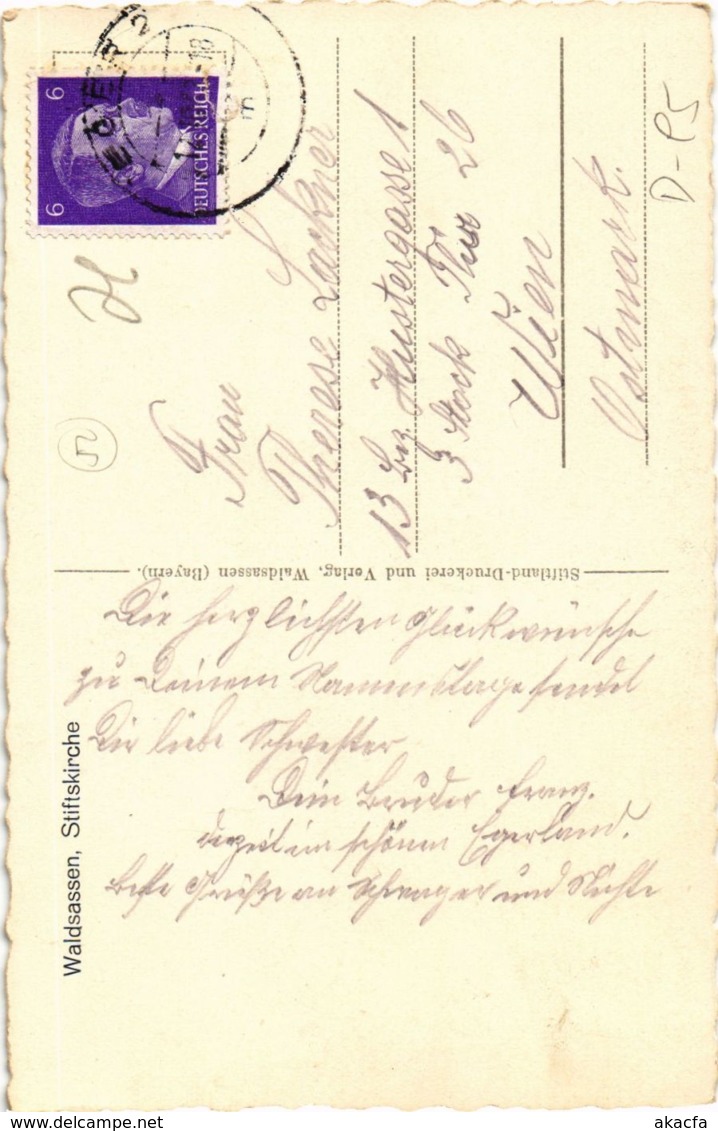 6
6
DEUTSCHES REICH
EGER 2
Frau
Therese Lackner
13 Bez. Hustergasse 1
3 Stock Tür 26
Wien
Ostmark.
D-P5
Stiftland-Druckerei und Verlag, Waldsassen (Bayern).
Waldsassen, Stiftskirche
Die herzlichsten Glückwünsche
zu Deinem Namenstage sendet
Dir liebe Schwester
Dein Bruder Franz.
derzeit im schönen Egerland.
beste Grüße an Schwager und Nichte
akacfa